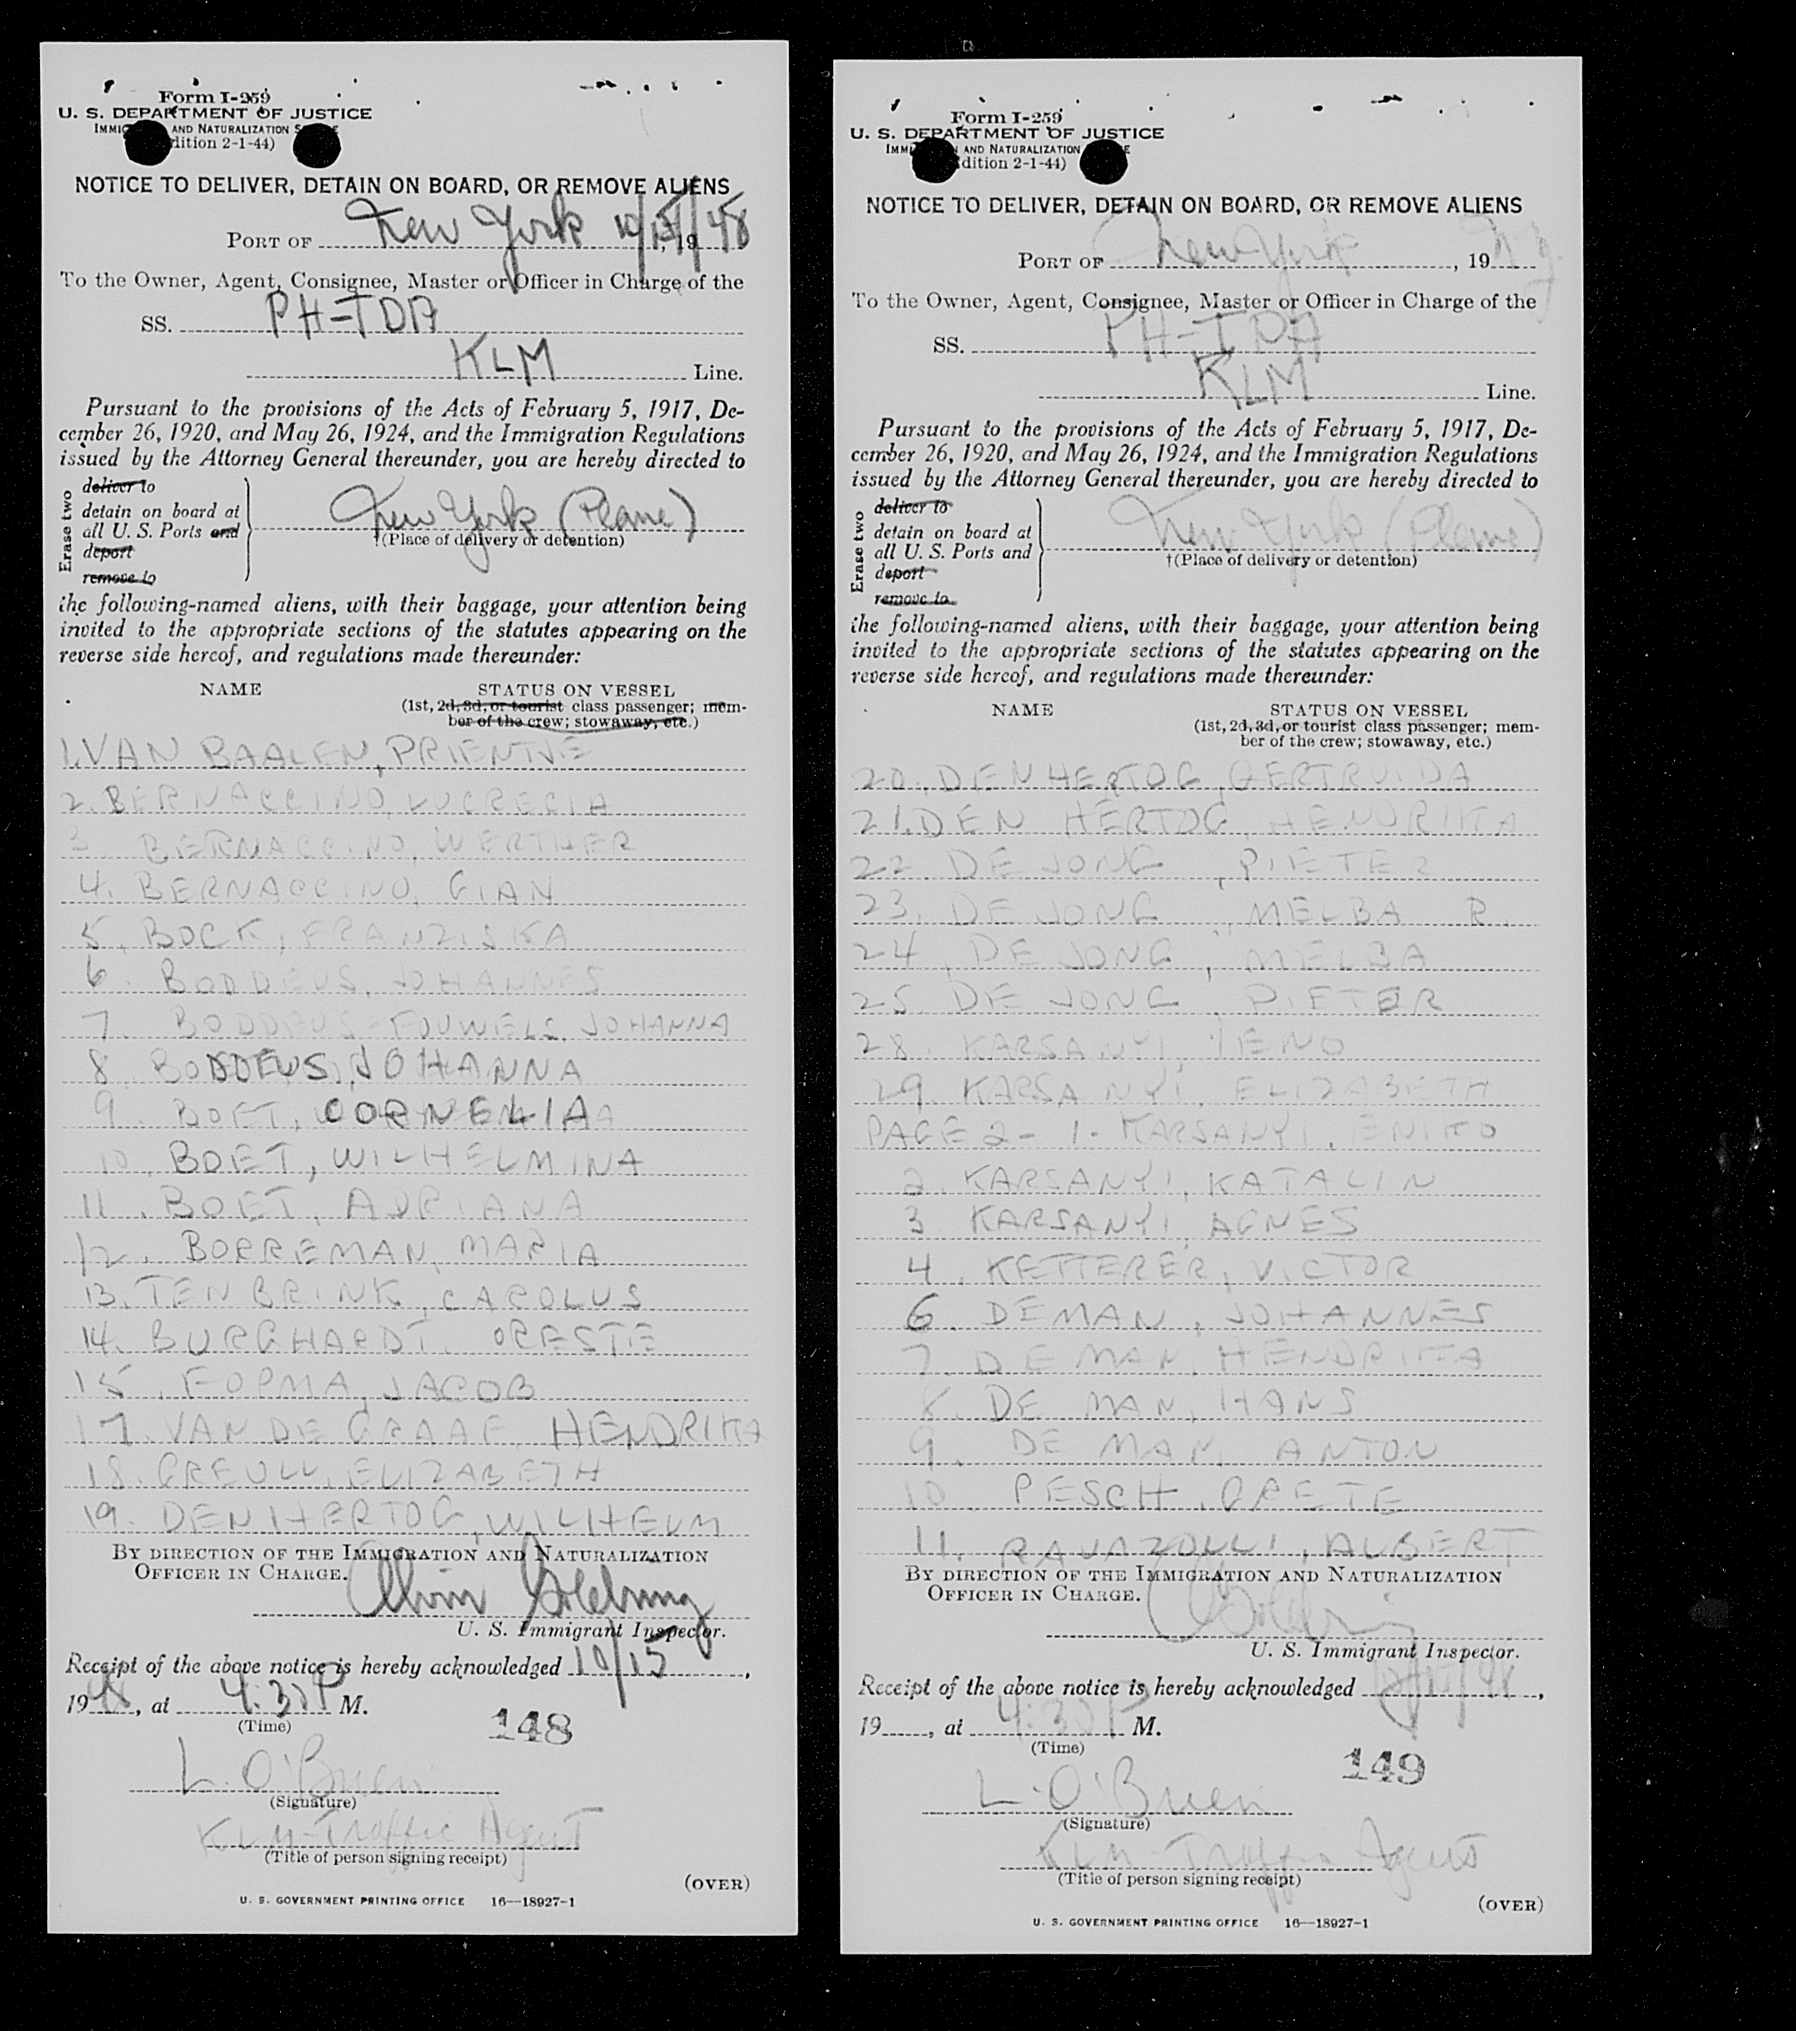 Form I-259
U. S. DEPARTMENT OF JUSTICE
AND NATURALIZATION
(Edition 2-1-44)
NOTICE TO DELIVER, DETAIN ON BOARD, OR REMOVE ALIENS
PORT OF New York 10/15/, 19 48
To the Owner, Agent, Consignee, Master or Officer in Charge of the
SS. PH-TDA
KLM Line.
Pursuant to the provisions of the Acts of February 5, 1917, De-
cember 26, 1920, and May 26, 1924, and the Immigration Regulations
issued by the Attorney General thereunder, you are hereby directed to
Erase two
deliver to
detain on board at
all U. S. Ports and
deport
remove to
New York (Plane)
†(Place of delivery or detention)
the following-named aliens, with their baggage, your attention being
invited to the appropriate sections of the statutes appearing on the
reverse side hereof, and regulations made thereunder:
NAME STATUS ON VESSEL
(1st, 2d, 3d, or tourist class passenger; mem-
ber of the crew; stowaway, etc.)
1. VAN BAALEN, PRIENTJE
2. BERNACCINO, LUCRECIA
3 BERNACCINO, WERTHER
4. BERNACCINO, GIAN
5. BOCK, FRANZISKA
6. BODDEUS, JOHANNES
7. BODDEUS-FOUWELS, JOHANNA
8. BODDEUS, JOHANNA
9. BOET, CORNELIA
10. BOET, WILHELMINA
11. BOET, ADRIANA
12. BORREMAN, MARIA
13. TEN BRINK, CAROLUS
14. BURGHARDT, ORESTE
15. FOPMA, JACOB
17. VAN DE GRAAF, HENDRIKA
18. GREULL, ELIZABETH
19. DEN HERTOG, WILHELM
BY DIRECTION OF THE IMMIGRATION AND NATURALIZATION
OFFICER IN CHARGE.
U. S. Immigrant Inspector.
Receipt of the above notice is hereby acknowledged 10/15,
19 48, at 4:30 P M.
(Time)
148
L. O'Brien
(Signature)
KLM-Traffic Agent
(Title of person signing receipt)
(OVER)
U. S. GOVERNMENT PRINTING OFFICE 16—18927-1
Form I-259
U. S. DEPARTMENT OF JUSTICE
AND NATURALIZATION
(Edition 2-1-44)
NOTICE TO DELIVER, DETAIN ON BOARD, OR REMOVE ALIENS
PORT OF New York, 19
To the Owner, Agent, Consignee, Master or Officer in Charge of the
SS. PH-TDA
KLM Line.
Pursuant to the provisions of the Acts of February 5, 1917, De-
cember 26, 1920, and May 26, 1924, and the Immigration Regulations
issued by the Attorney General thereunder, you are hereby directed to
Erase two
deliver to
detain on board at
all U. S. Ports and
deport
remove to
New York (Plane)
†(Place of delivery or detention)
the following-named aliens, with their baggage, your attention being
invited to the appropriate sections of the statutes appearing on the
reverse side hereof, and regulations made thereunder:
NAME STATUS ON VESSEL
(1st, 2d, 3d, or tourist class passenger; mem-
ber of the crew; stowaway, etc.)
20. DEN HERTOG, GERTRUIDA
21. DEN HERTOG, HENDRIKA
22. DE JONG, PIETER
23. DE JONG, MELBA R.
24. DE JONG, MELBA
25. DE JONG, PIETER
28. KARSANYI, JENO
29. KARSANYI, ELIZABETH
PAGE 2 - 1. KARSANYI, ENIKO
2. KARSANYI, KATALIN
3 KARSANYI, AGNES
4. KETTERER, VICTOR
6. DEMAN, JOHANNES
7. DE MAN, HENDRIKA
8. DE MAN, HANS
9. DE MAN, ANTON
10. PESCH, GRETE
11. RAVAZOLLI, ALBERT
BY DIRECTION OF THE IMMIGRATION AND NATURALIZATION
OFFICER IN CHARGE.
U. S. Immigrant Inspector.
Receipt of the above notice is hereby acknowledged 10/15/48,
19, at 4:30 P M.
(Time)
149
L. O'Brien
(Signature)
KLM-Traffic Agent
(Title of person signing receipt)
(OVER)
U. S. GOVERNMENT PRINTING OFFICE 16—18927-1